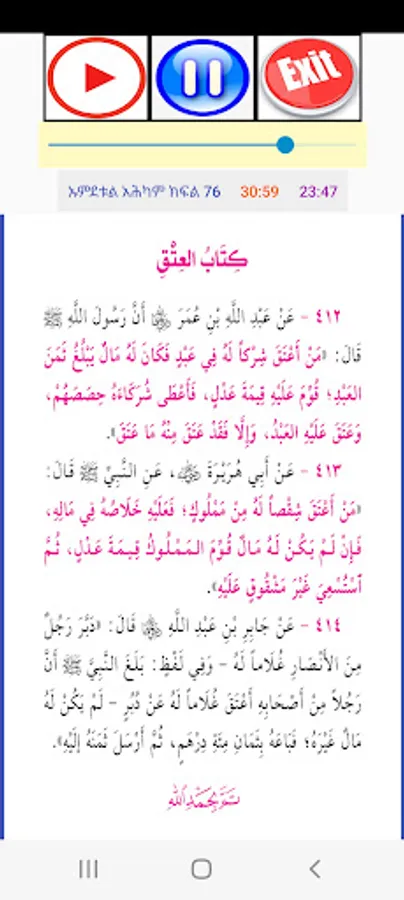 Exit
ኡምደቱል አሕካም ክፍል 76 30:59 23:47
كِتَابُ العِتْقِ
٤١٢ - عَنْ عَبْدِ اللَّهِ بْنِ عُمَرَ ﵄ أَنَّ رَسُولَ اللَّهِ ﷺ
قَالَ: «مَنْ أَعْتَقَ شِرْكاً لَهُ فِي عَبْدٍ فَكَانَ لَهُ مَالٌ يَبْلُغُ ثَمَنَ
العَبْدِ؛ قُوِّمَ عَلَيْهِ قِيمَةَ عَدْلٍ، فَأَعْطَى شُرَكَاءَهُ حِصَصَهُمْ،
وَعَتَقَ عَلَيْهِ العَبْدُ، وَإِلَّا فَقَدْ عَتَقَ مِنْهُ مَا عَتَقَ».
٤١٣ - عَنْ أَبِي هُرَيْرَةَ ﵁، عَنِ النَّبِيِّ ﷺ قَالَ:
«مَنْ أَعْتَقَ شِقْصاً لَهُ مِنْ مَمْلُوكٍ؛ فَعَلَيْهِ خَلَاصُهُ فِي مَالِهِ،
فَإِنْ لَمْ يَكُنْ لَهُ مَالٌ قُوِّمَ المَمْلُوكُ قِيمَةَ عَدْلٍ، ثُمَّ
ٱسْتُسْعِيَ غَيْرَ مَشْقُوقٍ عَلَيْهِ».
٤١٤ - عَنْ جَابِرِ بْنِ عَبْدِ اللَّهِ ﵄ قَالَ: «دَبَّرَ رَجُلٌ
مِنَ الأَنْصَارِ غُلَاماً لَهُ - وَفِي لَفْظٍ: بَلَغَ النَّبِيَّ ﷺ أَنَّ
رَجُلاً مِنْ أَصْحَابِهِ أَعْتَقَ غُلَاماً لَهُ عَنْ دُبُرٍ - لَمْ يَكُنْ لَهُ
مَالٌ غَيْرَهُ؛ فَبَاعَهُ بِثَمَانِ مِئَةِ دِرْهَمٍ، ثُمَّ أَرْسَلَ ثَمَنَهُ إِلَيْهِ».
تَمَّ بِحَمْدِ اللَّهِ